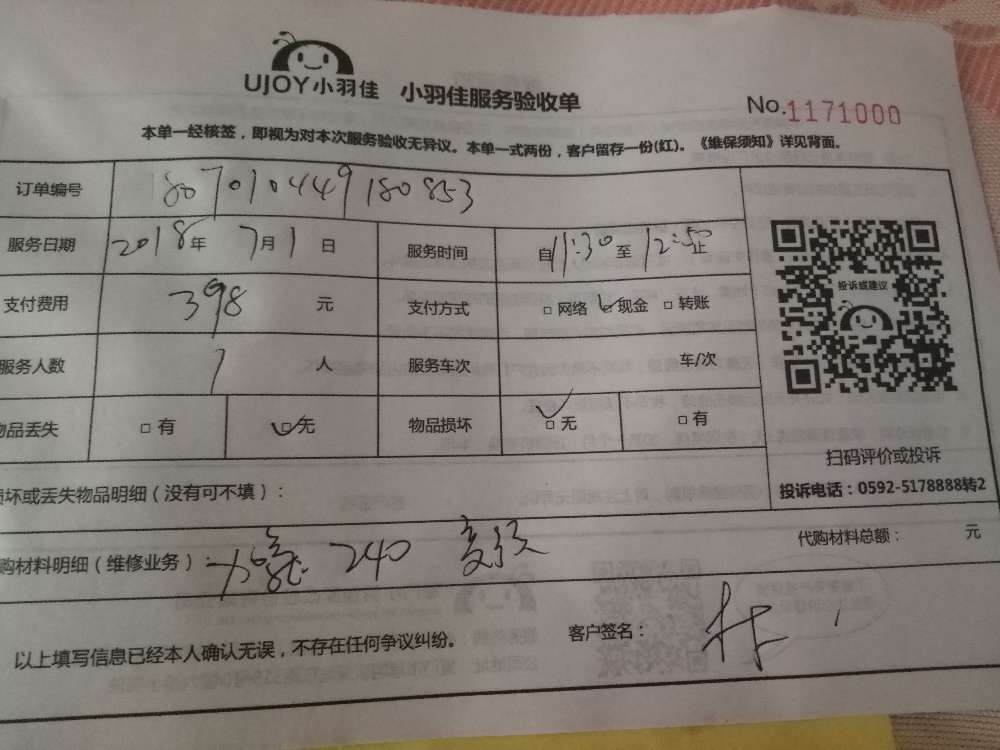 UJOY小羽佳 小羽佳服务验收单 No.1171000
本单一经核签，即视为对本次服务验收无异议。本单一式两份，客户留存一份(红)。《维保须知》详见背面。
订单编号 1807010449180853
服务日期 2018年 7月1日 服务时间 自11:30至12:50止
支付费用 398 元 支付方式 □网络 □现金 □转账
服务人数 1 人 服务车次 车/次
物品丢失 □有 □无 物品损坏 □无 □有
投诉或建议
扫码评价或投诉
投诉电话：0592-5178888转2
损坏或丢失物品明细（没有可不填）：
购材料明细（维修业务）： 240 代购材料总额： 元
以上填写信息已经本人确认无误，不存在任何争议纠纷。 客户签名：